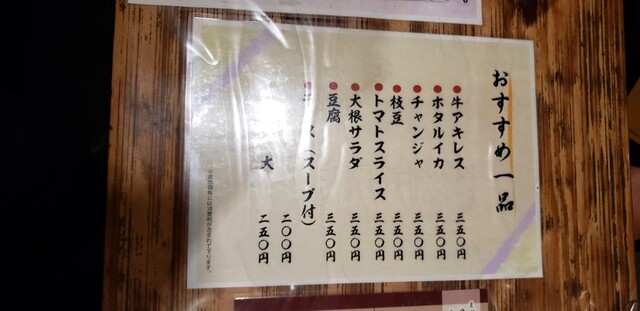 おすすめ一品
牛アキレス 三五〇円
ホタルイカ 三五〇円
チャンジャ 三五〇円
枝豆 三五〇円
トマトスライス 三五〇円
大根サラダ 三五〇円
豆腐 三五〇円
(スープ付) 二〇〇円
大 二五〇円